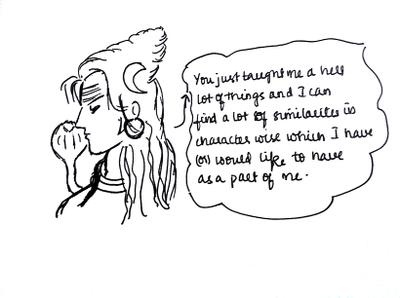 You just taught me a hell
lot of things and I can
find a lot of similarites in
character wise which I have
(or) would like to have
as a part of me.